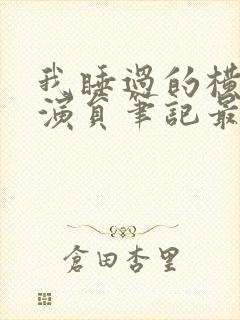 我睡過的橫
演員筆記最
倉田杏里